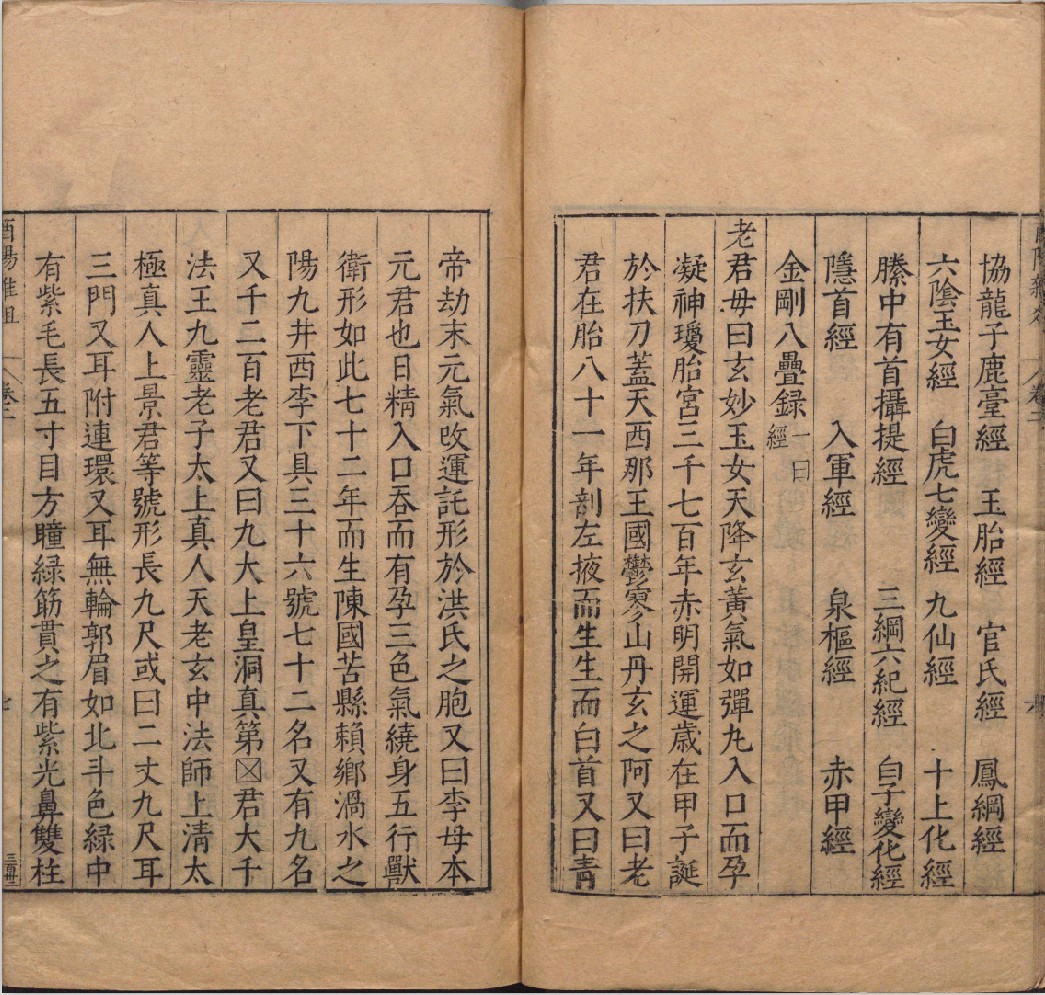 協龍子鹿臺經　玉胎經　官氏經　鳳綱經
六陰玉女經　白虎七變經　九仙經　十上化經
縢中有首攝提經　三綱六紀經　白子變化經
隱首經　入軍經　泉樞經　赤甲經
金剛八疊錄一曰經
老君母曰玄妙玉女天降玄黃氣如彈丸入口而孕
凝神瓊胎宮三千七百年赤明開運歲在甲子誕
於扶刀蓋天西那王國鬱寥山丹玄之阿又曰老
君在胎八十一年剖左掖而生生而白首又曰青
帝劫末元氣改運託形於洪氏之胞又曰李母本
元君也日精入口吞而有孕三色氣繞身五行獸
衛形如此七十二年而生陳國苦縣賴鄉渦水之
陽九井西李下具三十六號七十二名又有九名
又千二百老君又曰九大上皇洞真第〼君大千
法王九靈老子太上真人天老玄中法師上清太
極真人上景君等號形長九尺或曰二丈九尺耳
三門又耳附連環又耳無輪郭眉如北斗色綠中
有紫毛長五寸目方瞳綠筋貫之有紫光鼻雙柱
酉陽雜俎　卷二　七